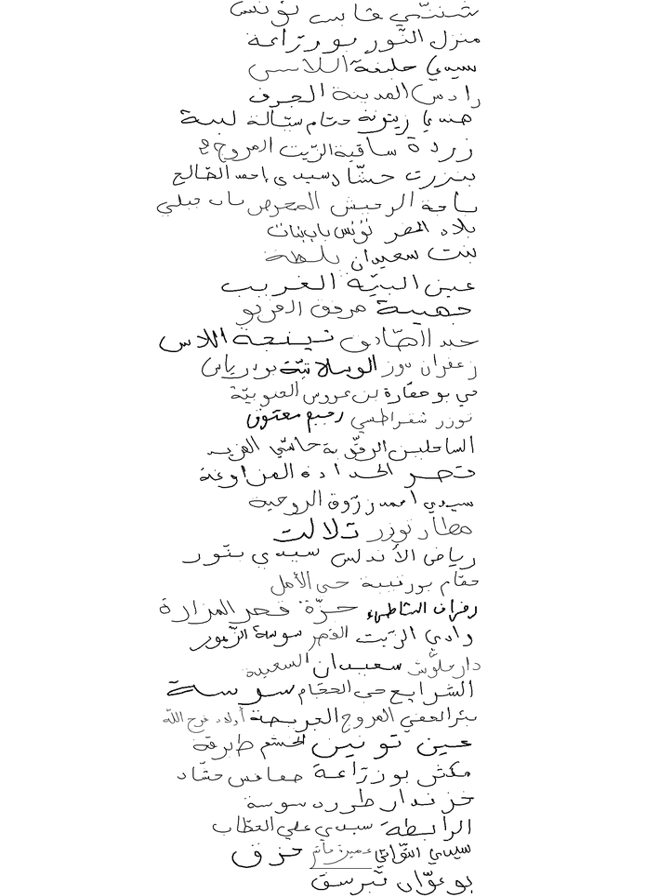 شنني قابس تونس
منزل النور بوزراعة
سيدي خليفة اللاس
رادس المدينة الجرف
هنشي زيتونة حمام سيالة لببة
زردة ساقية الزيت المروج
بنزرت حشاد سيدي احمد الصالح
ساحة الرحيش المحرص باب جبلي
بلاد الحضر تونس باب بنات
بنت سعيدان بلطة
عين البية الغريب
جهينة مرناق الفريو
حد الصادق نينجة اللاس
زعفران دوز الوسلاتية بو درياس
حي بو حفارة بن عروس الجنوبية
توزر شقراطسي رجيم معتوق
الساحلين الرقوبة حاسي الفريد
قصر الحدادة الفراوعة
سيدي احمد زروق الروحية
مطار توزر تلالت
رياض الأندلس سيدي بنور
حمام بورقيبة حي الأمل
رفراف الشاطىء حزة قصر المزارة
وادي الزيت القصر سوسة الزهور
دار علوش سعيدان السعيدة
الشرايع حي الحجام سوسة
بئر الحفي المروج العريضة أولاد فرج الله
عين تونين الخشم طبرقة
مكثر بوزراعة صفاقس حشاد
خزندار طرد سوسة
الرابطة سيدي علي الحطاب
سيدي التواتي حزق
بوعوان تبرسق